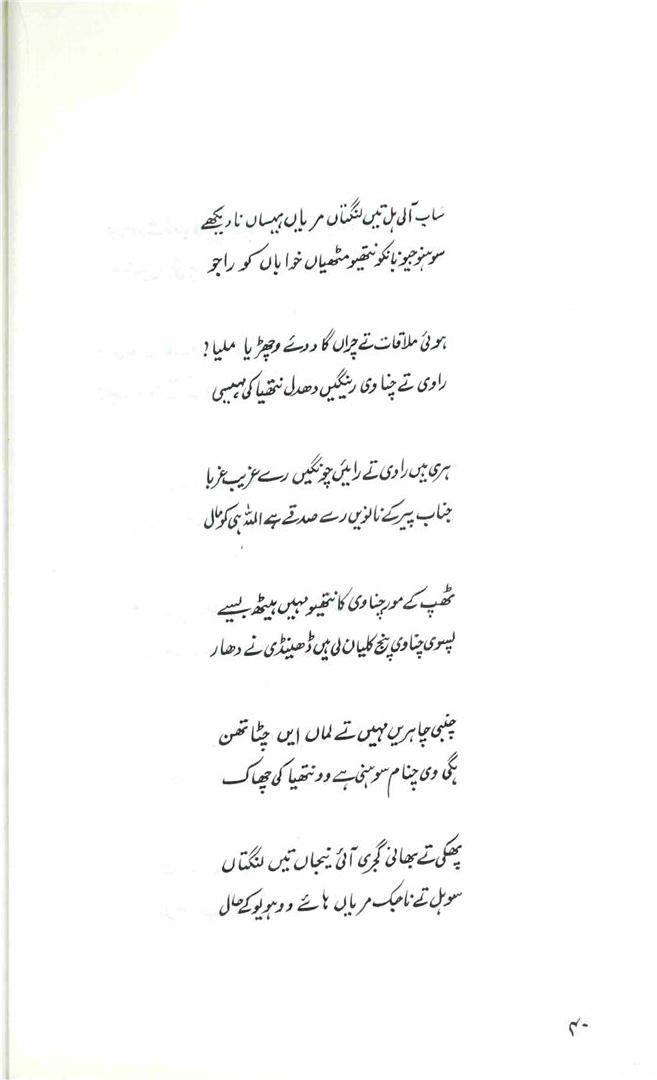 ساب آلی ہل تیں لنگتاں مریاں ہیساں نا دیکھے
سوہنو جیو بانکو نتھیو مٹھیاں خواباں کو راجو
ہوئی ملاقات تے چراں گا ددے وچھڑیا ملیا؟
راوی تے چناوی رینگیں دھدل نتھیا کی ہیسی
ہری ہیں راوی تے رایئں چونگیں رے عزیب غربا
جناب پیر کے نانویں رے صدقے ہے اللہ ہی کو مال
ٹھپ کے مور چناوی کا نتھیو مہیں ہیٹھ بسیے
پسوی چناوی پنج کلیان لی ہیں ڈھینڈی نے دھار
چنبی چاہریں مہیں تے لماں ایں چٹا تھن
ہگی وی چنام سوہنی ہے وو نتھیا کی چھاک
پھکی تے بھانی گجری آئ نیجاں تیں لنگتاں
سوہل تے ناجک مریاں ہائے وو ہویو کے حال
۴۰